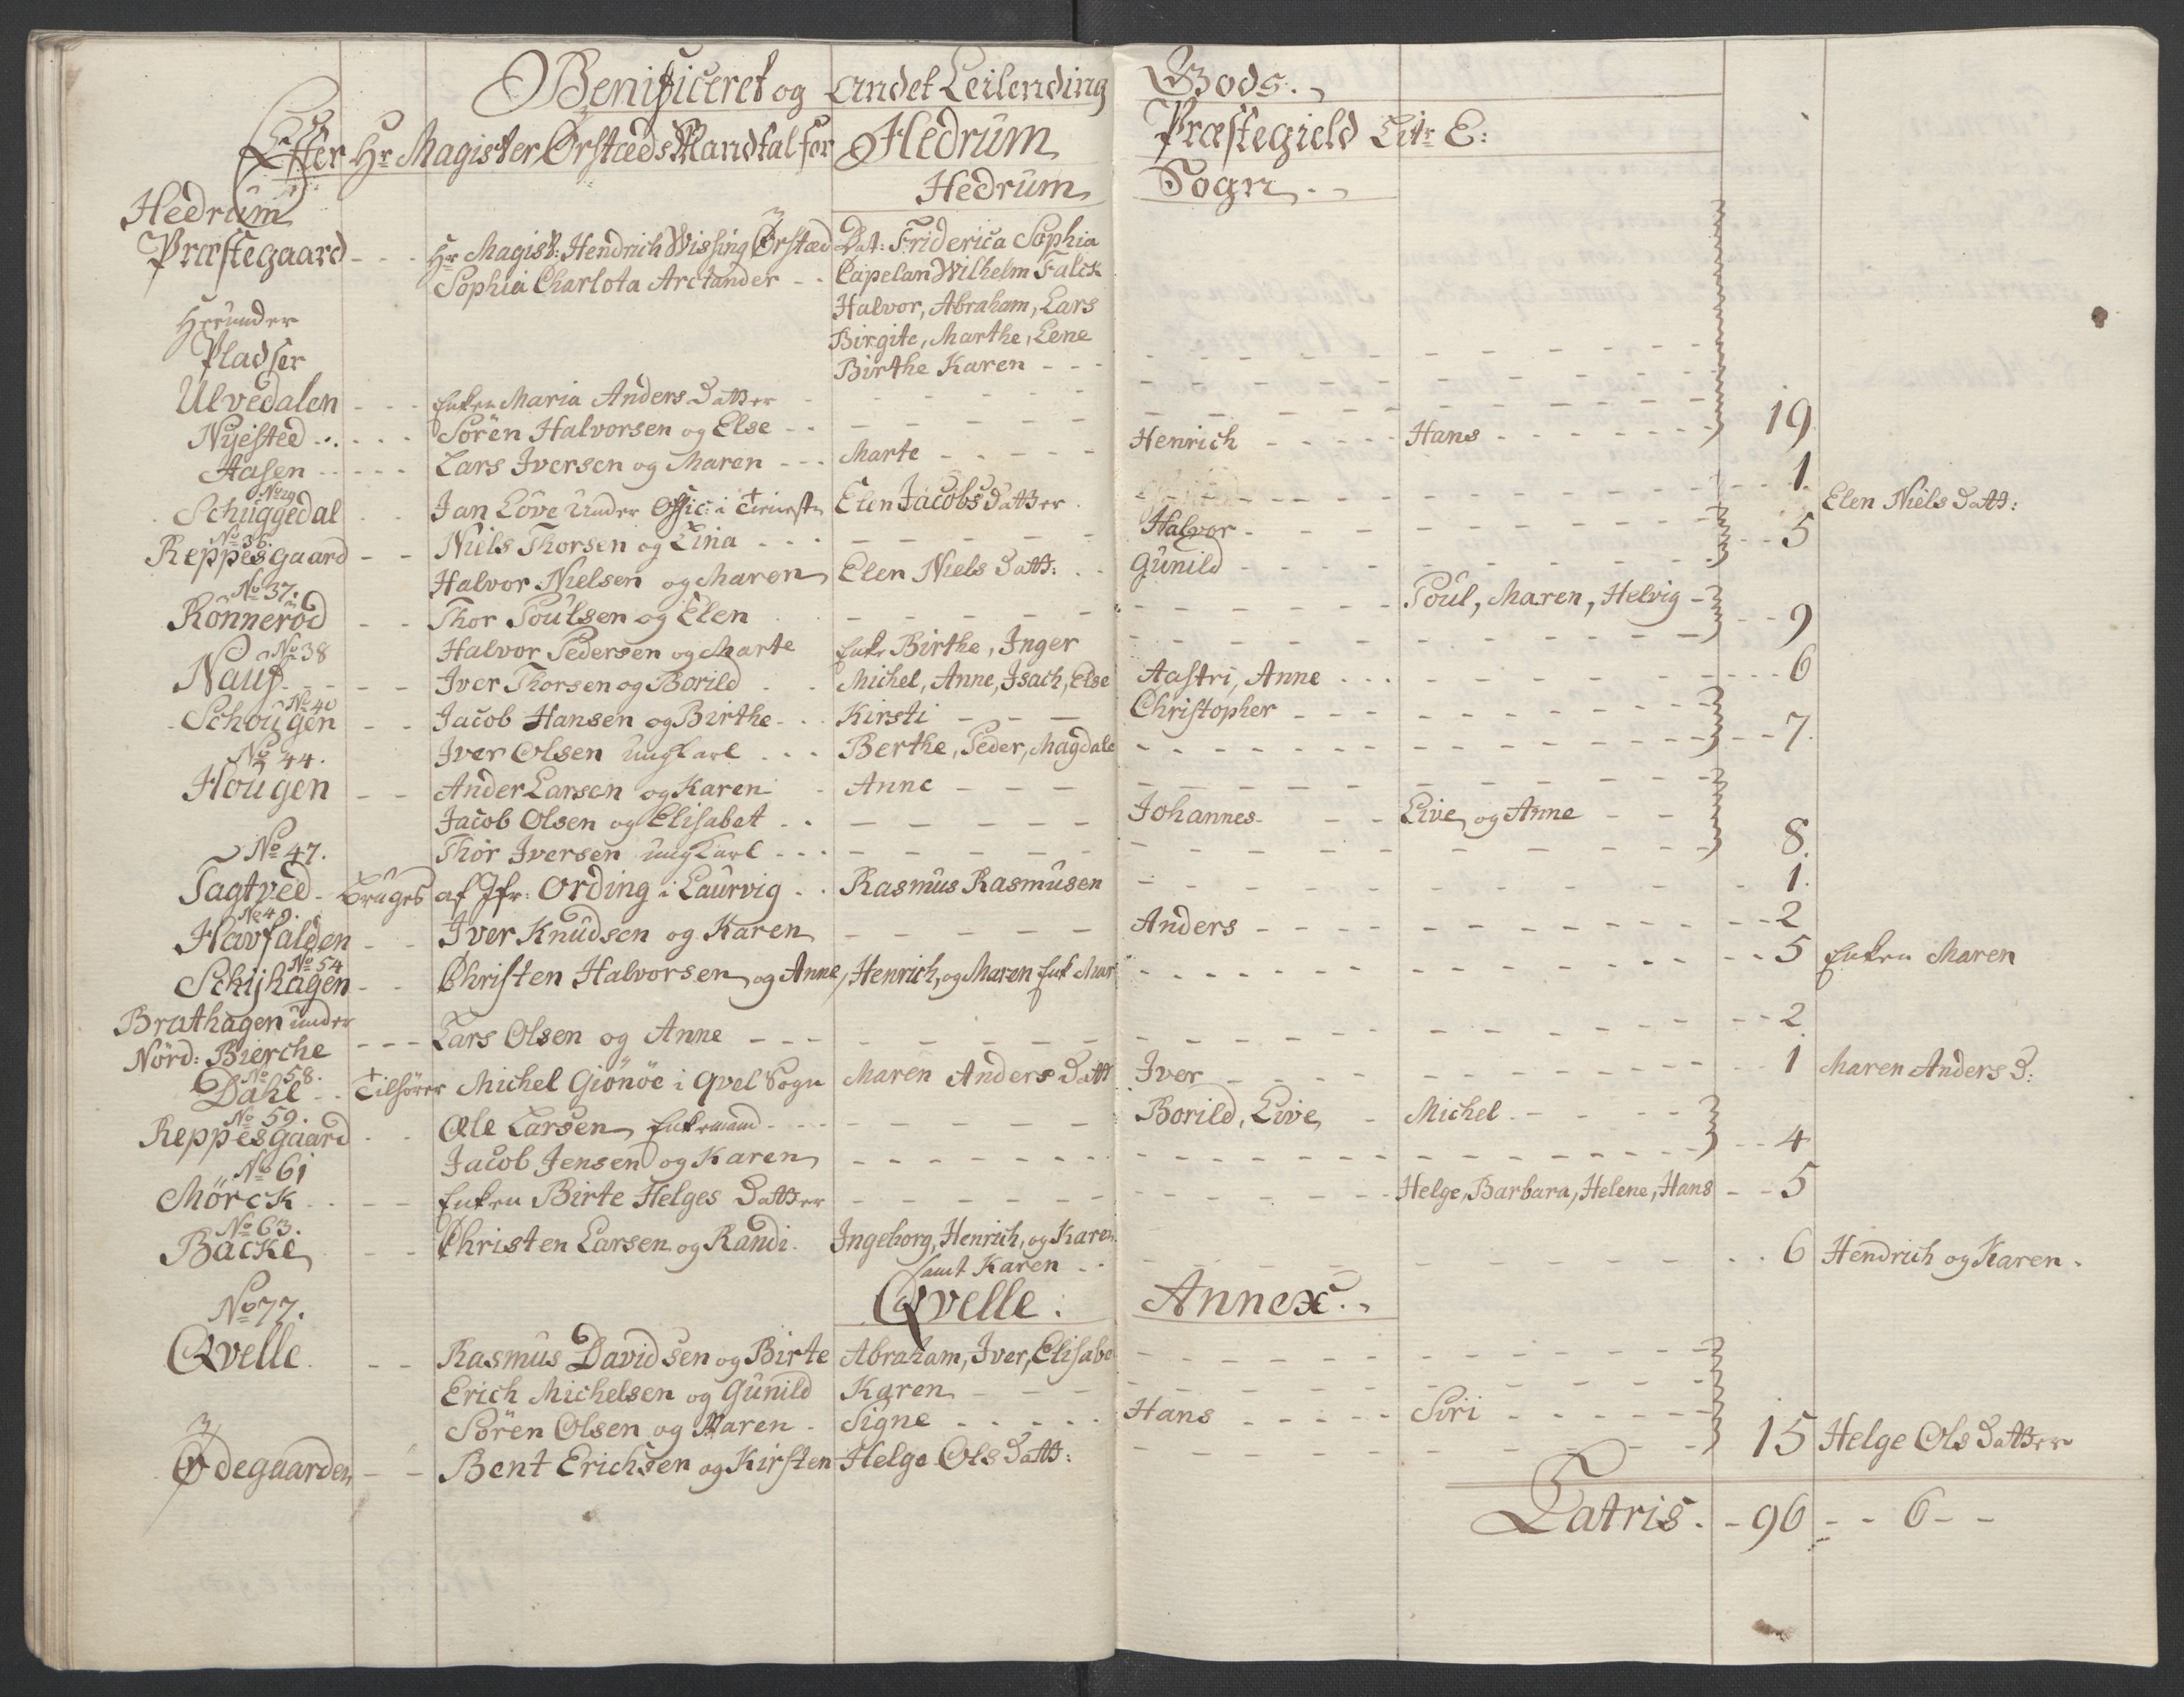 Benificeret og andet Leilending Gods.
Efter Hr Magister Ørstæds Mandtal for Hedrum Præstegield Litr E:
Hedrum Sogn.
Hedrum
Præstegaard - - - Hr Magist: Hendrich Wissing Ørstæd Dat: Friderica Sophia
Sophia Charlota Arctander - - Capelan Wilhelm Falck
Herunder Halvor, Abraham, Lars
Pladser Birgite, Marthe, Lene
Birthe Karen - - -
Ulvedalen - - - Enken Maria Anders Datter
Nyested - - - Sören Halvorsen og Else - - Henrich - - - Hans - - - 19
Aasen - - - Lars Iversen og Maren - - - Marte - - -
No 29
Schuggedal - - Jan Löve under Offic: i Tieneste Elen Jacobs Datter - - - 1. Elen Niels Datt:
No 36.
Reppesgaard - - Niels Thorsen og Lina - - - Halvor - - - 5
Halvor Nielsen og Maren Elen Niels Datt: - - Gunild - - -
No 37.
Rönneröd - - Thor Poulsen og Elen - - - Poul, Maren, Helvig - 9
Halvor Pedersen og Marte Enke Birthe, Inger - - -
No 38
Nauf - - - Iver Thorsen og Borild - - Michel, Anne, Isach, Else Aastri, Anne - - - 6
No 40
Schougen - - Jacob Hansen og Birthe - - Kirsti - - - Christopher - - - 7.
Iver Olsen ungkarl - - - Berthe, Peder, Magdale - - -
No 44.
Hougen - - Ander Larsen og Karen - Anne - - -
Jacob Olsen og Elisabet - - - - - Johannes - - - Live og Anne - - 8.
Thor Iversen ungkarl - - -
No 47.
Tagtved - bruges af Jfr: Ording i Laurvig - - Rasmus Rasmusen - - - 1.
No 49.
Havfalden - - Iver Knudsen og Karen - - - Anders - - - 2
No 54
Schijhagen - - Christen Halvorsen og Anne, Henrich, og Maren Enk Mar - - - 5 Enken Maren
Brathagen under
Nörd: Bierche - - - Lars Olsen og Anne - - - 2.
No 58.
Dahl - - Tilhörer Michel Gionöe i Qvel Sogn Maren Anders Datt Iver - - - 1 Maren Anders D:
No 59.
Reppesgaard - - Ole Larsen Enkemand - - - Borild, Live, - Michel - - - 4
Jacob Jensen og Karen - - -
No 61
Mörck - - - Enken Birte Helges Datter - - - Helge, Barbara, Helene, Hans - - 5
No 63.
Backe - - - Christen Larsen og Randi. Ingeborg, Henrich, og Karen
samt Karen - - - 6 Hendrich og Karen.
Qvelle. Annex.
No 77.
Qvelle. - - Rasmus Davidsen og Birte Abraham, Iver, Elisabe - - -
Erich Michelsen og Gunild Karen - - -
Sören Olsen og Maren - Signe - - - Hans - - - Siri - - - 15 Helge Ols Datter
Ødegaarden - - Bent Erichsen og Kirsten Helge Ols Datt: - - -
Latris. - 96 - - 6 - -